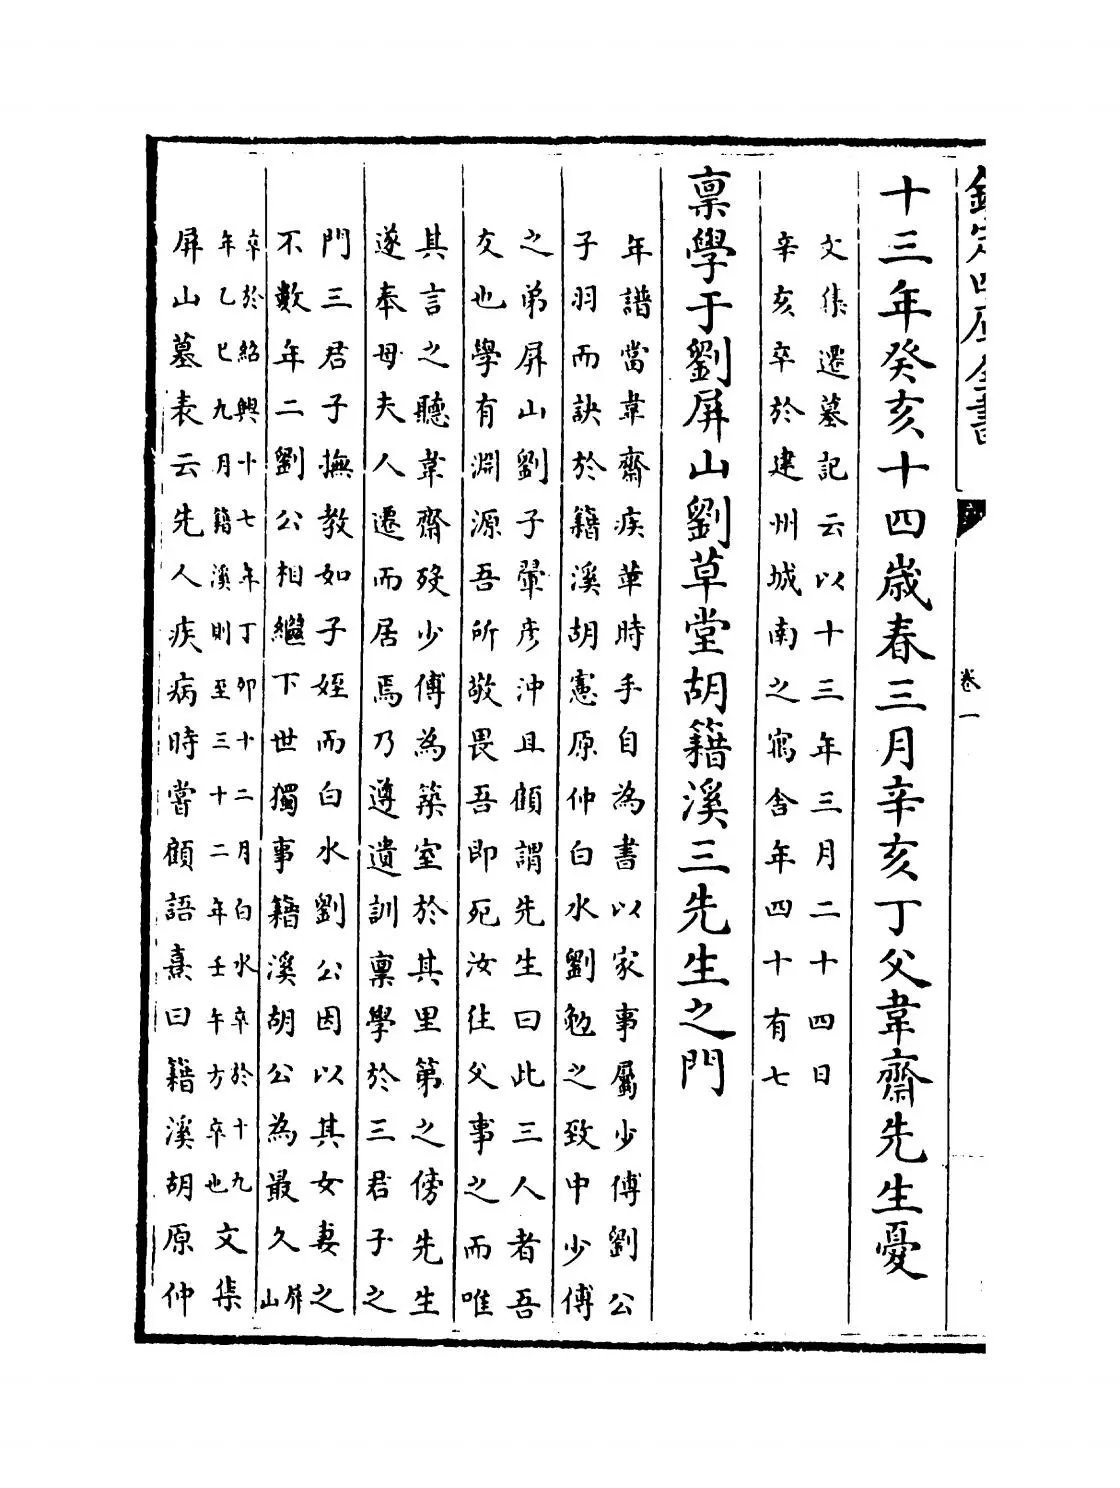 欽定四庫全書
卷一
十三年癸亥十四歳春三月辛亥丁父韋齋先生憂
文集遷墓記云以十三年三月二十四日
辛亥卒於建州城南之寓舍年四十有七
稟學于劉屏山劉草堂胡籍溪三先生之門
年譜當韋齋疾革時手自為書以家事屬少傅劉公
子羽而訣於籍溪胡憲原仲白水劉勉之致中少傅
之弟屏山劉子翬彦沖且顧謂先生曰此三人者吾
友也學有淵源吾所敬畏吾即死汝往父事之而唯
其言之聽韋齋殁少傅為築室於其里第之傍先生
遂奉母夫人遷而居焉乃遵遺訓稟學於三君子之
門三君子撫教如子姪而白水劉公因以其女妻之
不數年二劉公相繼下世獨事籍溪胡公為最久屏山
卒於紹興十七年丁卯十二月白水卒於十九
年乙巳九月籍溪則至三十二年壬午方卒也
文集
屏山墓表云先人疾病時嘗顧語熹曰籍溪胡原仲